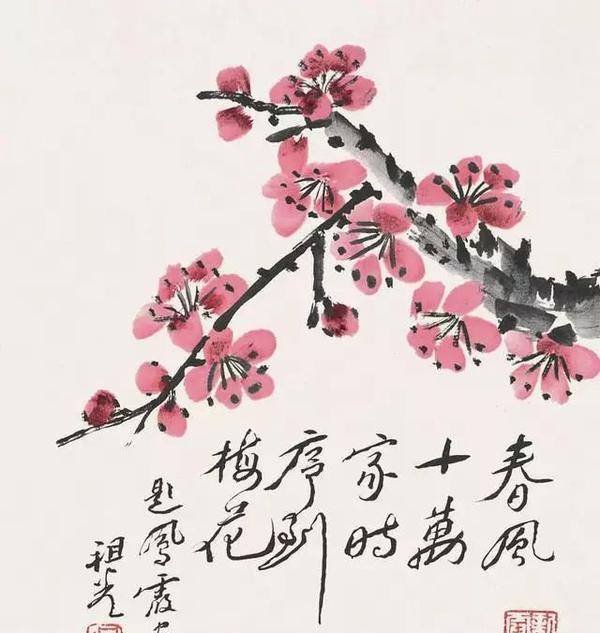 春風
十萬
家時
序到
梅花
題鳳霞
祖光